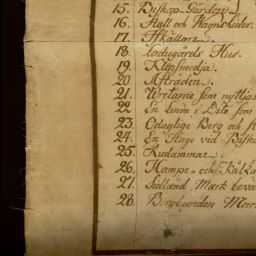 15. Biskop Gården
16. Stall och Wagnslider.
17. Iskällare.
18. Ladugårds Hus.
19. Klensmedja.
20. Afträden.
21. Uretarne som nyttjas
22 En linda i Dito som
23. Oduglige Berg och
24. En Hage vid Bisko
25. Rudammar.
26. Hampe- och Kålla
27. Sidländ Mark beva
28. Berglunden Mors